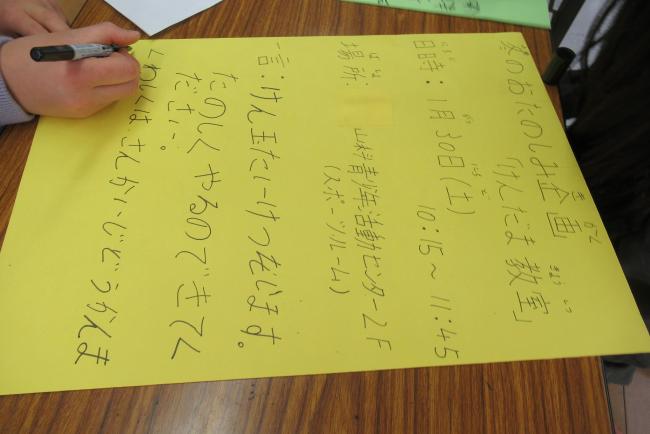 冬のおたのしみ企画
「けんだま教室」
日時：1月30日(土)
10:15～11:45
場所：
山科青少年活動センター2F
(スポーツルーム)
一言：けん玉たいけつをします。
たのしくやるのできてく
ださい。
くわしくは、じどうかんま